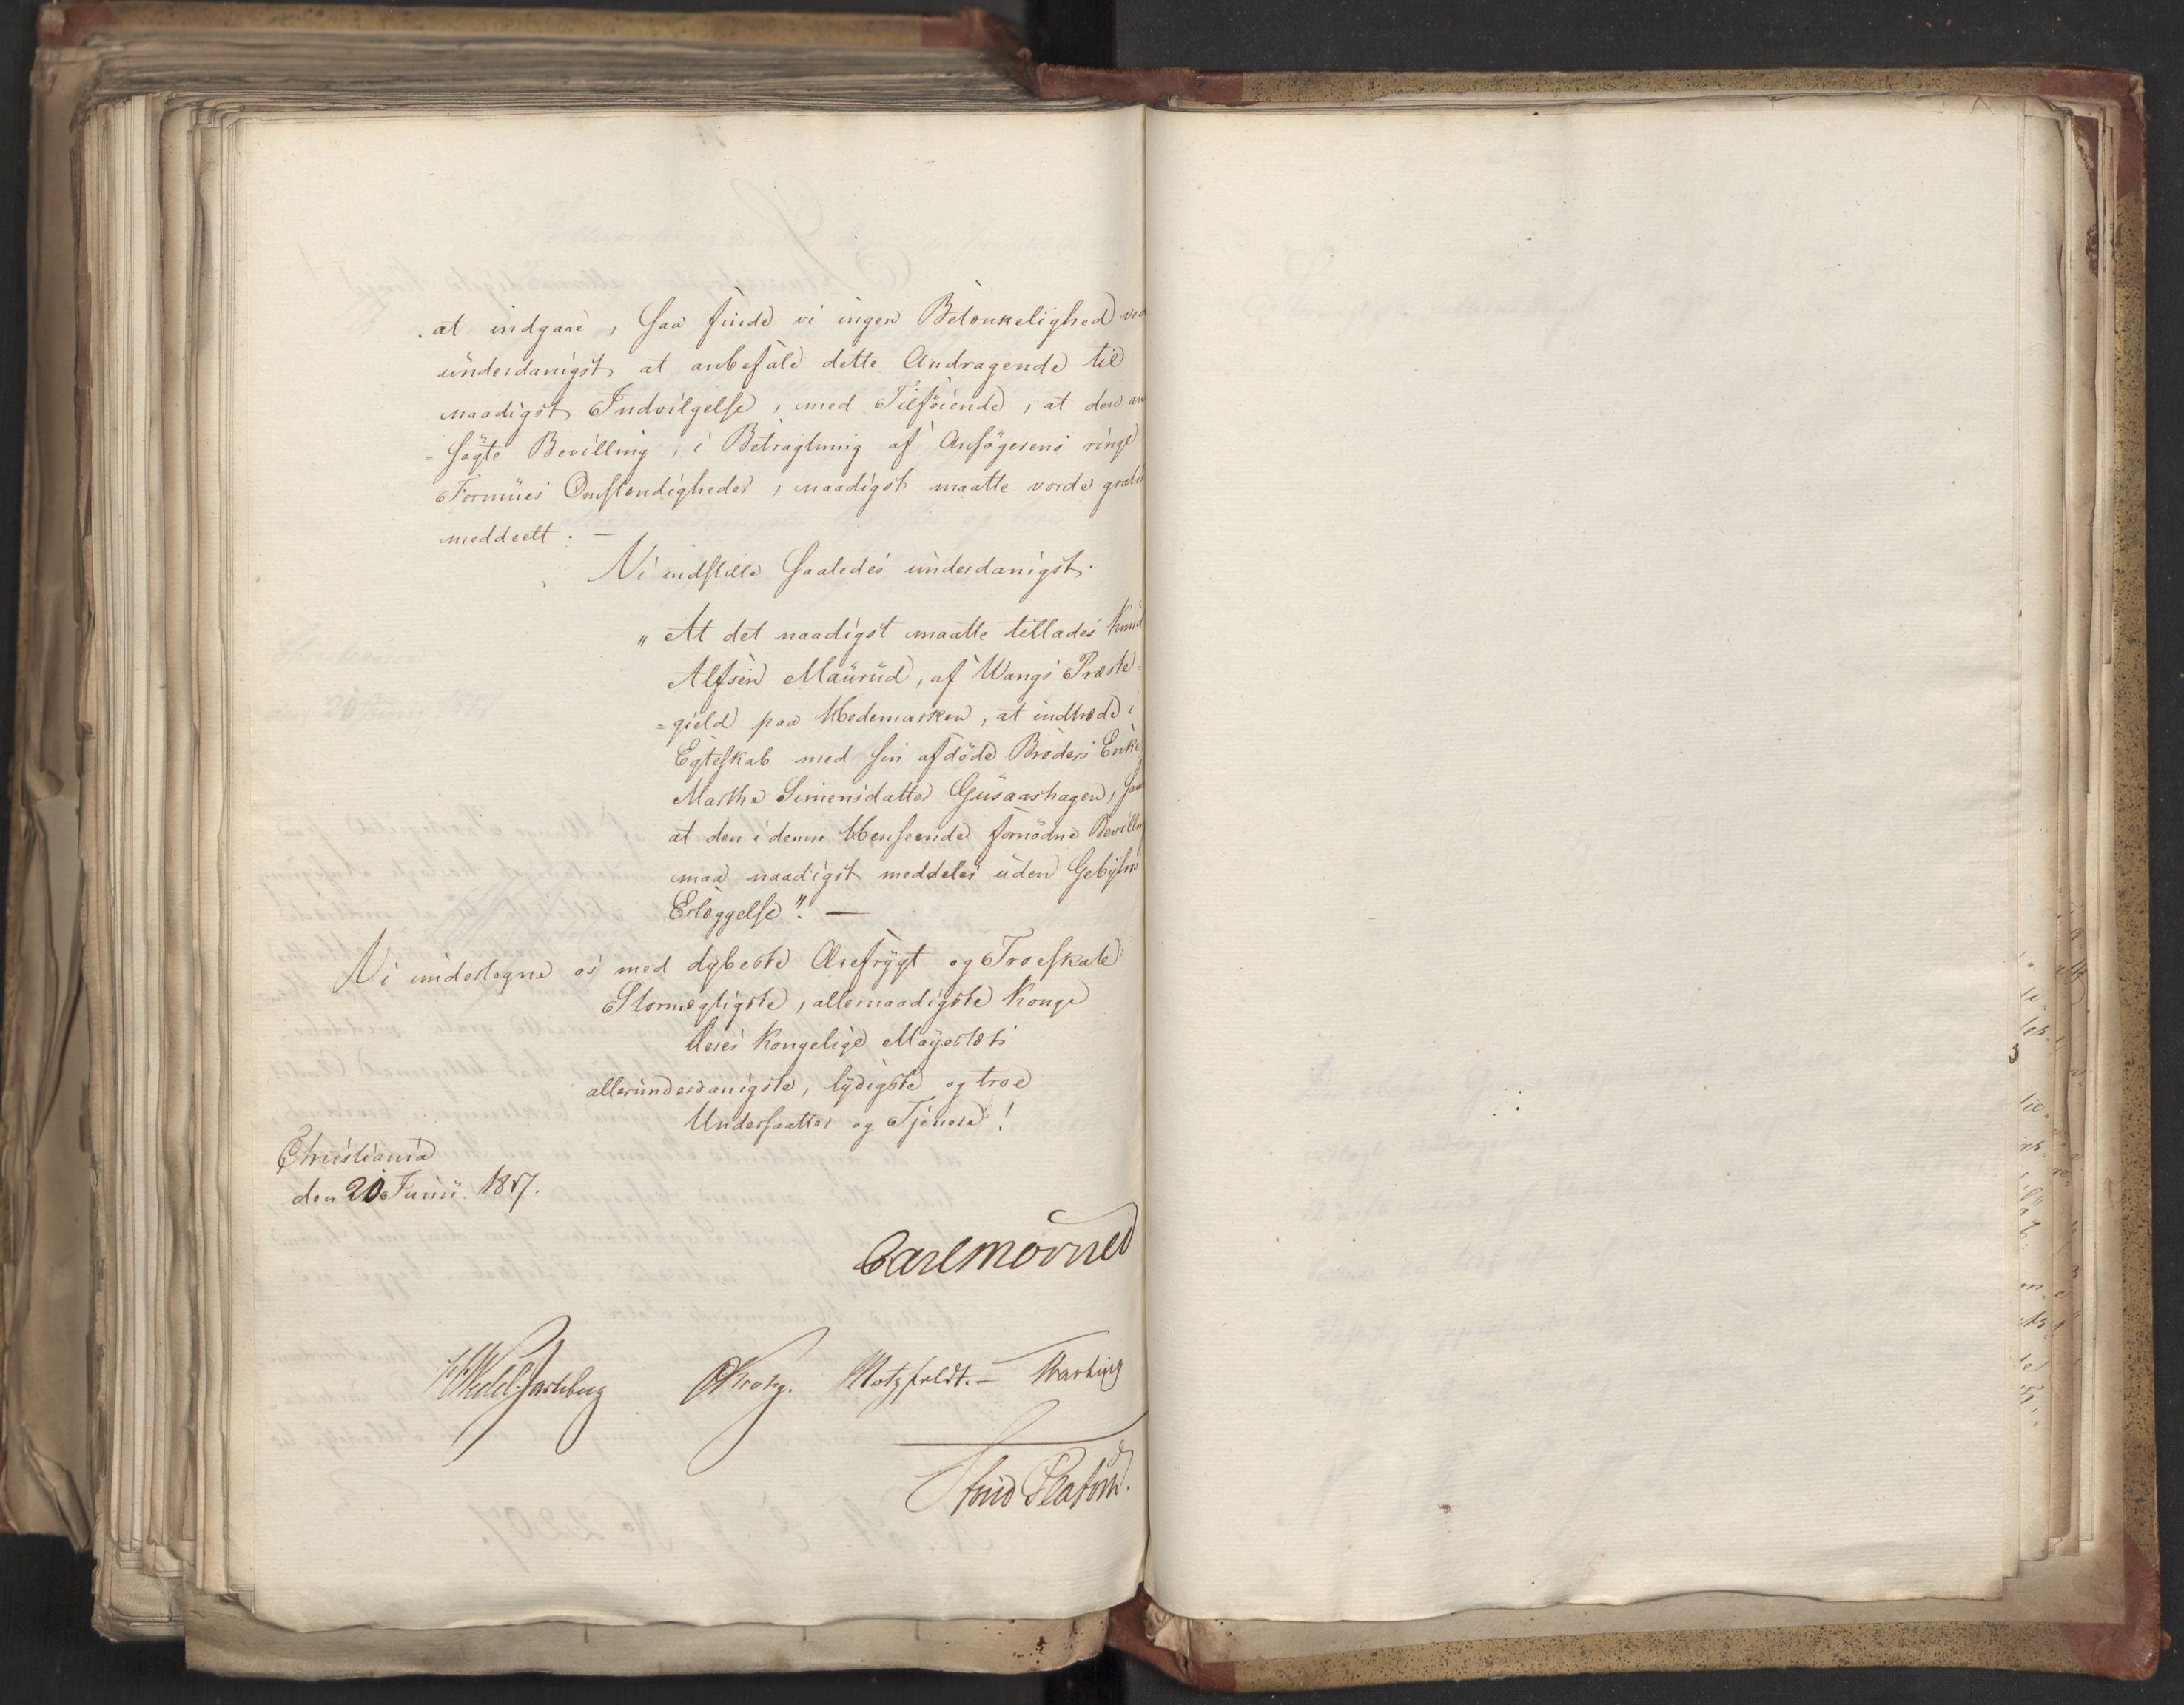 at indgaae, saa finde vi ingen Betænkelighed ved
underdanigst at anbefale dette Andragende til
naadigst Indvilgelse, med Tilføiende, at den an
=søgte Bevilling, i Betragtning af Ansøgerens ringe
Formues Omstændigheder, naadigst maatte vorde gratis
meddeelt. —
Vi indstille saaledes underdanigst:
„At det naadigst maatte tillades Knud
Alfsen Maurud, af Wangs Præste=
=gield paa Hedemarken, at indtræde i
Egteskab med sin afdøde Broders Enke
Marthe Simensdatter Gusaashagen, samt
at den i denne Henseende fornødne Bevilling
maa naadigst meddeles uden Gebyhrs
Erlæggelse". —
Vi undertegne os med dybeste Ærefrygt og Troeskab
Stormægtigste, allernaadigste Konge
Deres Kongelige Mayestæts
allerunderdanigste, lydigste og troe
Undersaatter og Tjenere!
Christiania
den 20 Junii 1817.
Carl Mörner
HWedel Jarlsberg Krohg. Motzfeldt. —
Fries Platou.